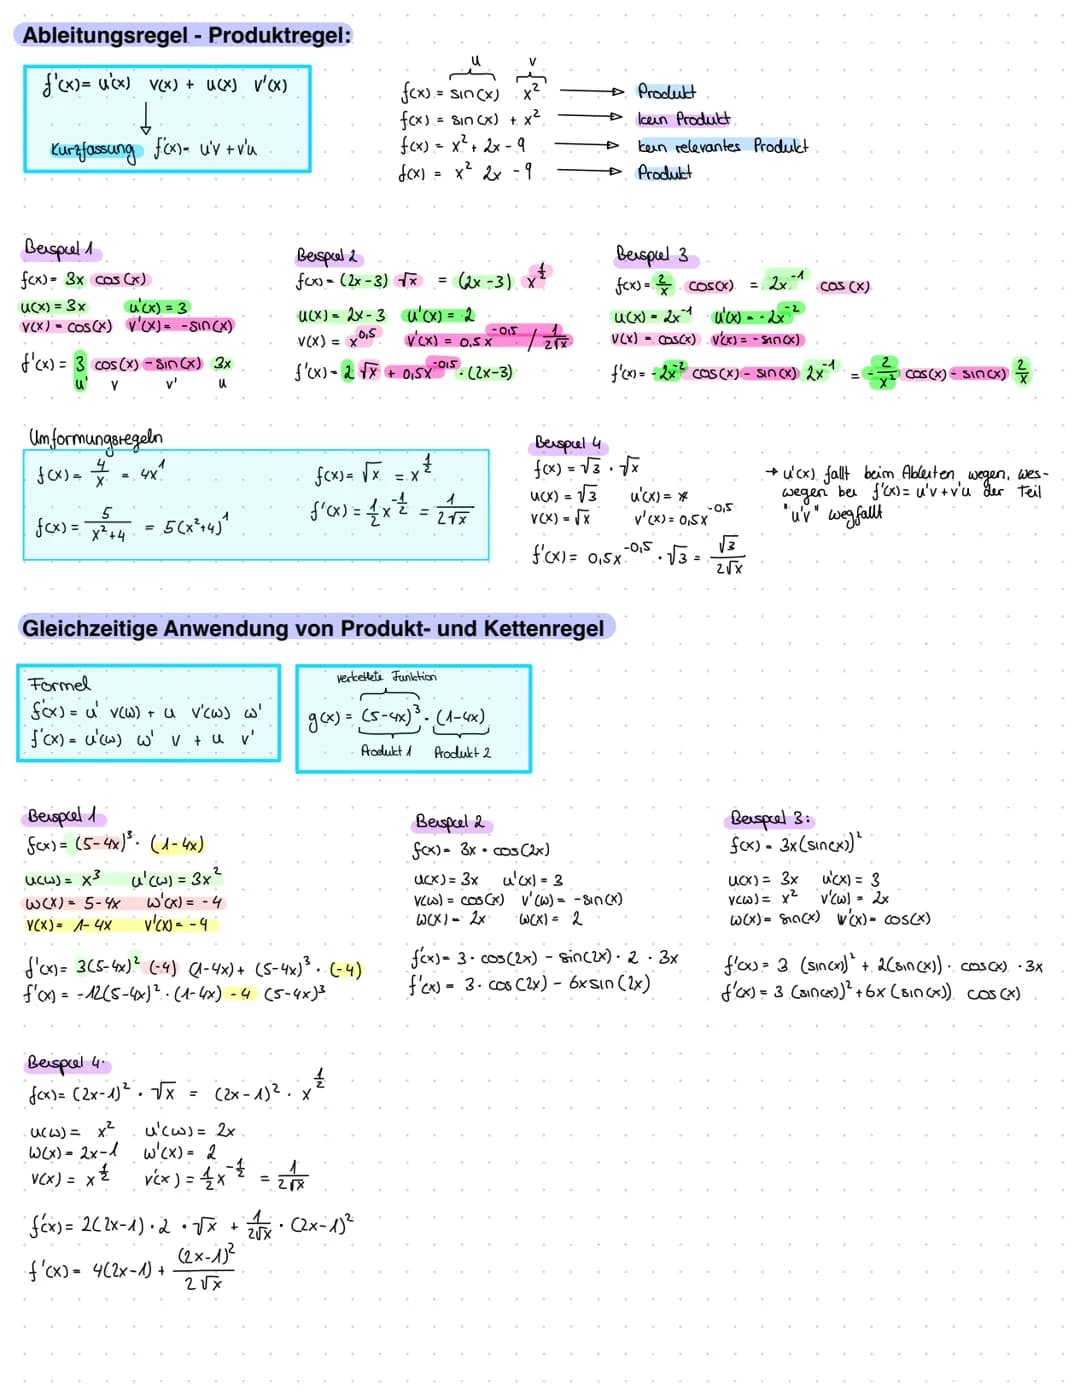 Ableitungsregel - Produktregel:
f'(x)= u'(x) v(x) + u(x) v'(x)
Kurzfassung f'(x)= u'v + v'u
u v
f(x) = sin(x) x² → Produkt
f(x) = sin(x) + x² → kein Produkt
f(x) = x² + 2x - 9 → kein relevantes Produkt
f(x) = x² 2x - 9 → Produkt
Beispiel 1
f(x)= 3x cos(x)
u(x) = 3x u'(x) = 3
v(x) = cos(x) v'(x) = -sin(x)
f'(x) = 3 cos(x) - sin(x) 3x
u' v v' u
Beispiel 2
f(x) = (2x-3) √x = (2x-3) x^½
u(x) = 2x-3 u'(x) = 2
v(x) = x^0,5 v'(x) = 0,5x^-0,5 / 1/(2√x)
f'(x) = 2 √x + 0,5x^-0,5 · (2x-3)
Beispiel 3
f(x) = 2/x cos(x) = 2x^-1 cos(x)
u(x) = 2x^-1 u'(x) = -2x^-2
v(x) = cos(x) v'(x) = -sin(x)
f'(x) = -2x^-2 cos(x) - sin(x) 2x^-1 = -2/x² cos(x) - sin(x) 2/x
Umformungsregeln
f(x) = 4/x = 4x^1
f(x) = 5/(x²+4) = 5(x²+4)^1
f(x) = √x = x^½
f'(x) = ½x^-½ = 1/(2√x)
Beispiel 4
f(x) = √3 · √x
u(x) = √3 u'(x) = *
v(x) = √x v'(x) = 0,5x^-0,5
f'(x) = 0,5x^-0,5 · √3 = √3/(2√x)
→ u'(x) fällt beim Ableiten wegen, wes-
wegen bei f'(x)= u'v + v'u der Teil
"u'v" wegfällt
Gleichzeitige Anwendung von Produkt- und Kettenregel
Formel
f'(x) = u' v(w) + u v'(w) w'
f'(x) = u'(w) w' v + u v'
verkettete Funktion
g(x) = (5-4x)³ · (1-4x)
Produkt 1 Produkt 2
Beispiel 1
f(x) = (5-4x)³ · (1-4x)
u(w) = x³ u'(w) = 3x²
w(x) = 5-4x w'(x) = -4
v(x) = 1-4x v'(x) = -4
f'(x) = 3(5-4x)² (-4) (1-4x) + (5-4x)³ · (-4)
f'(x) = -12(5-4x)² · (1-4x) - 4 (5-4x)³
Beispiel 2
f(x) = 3x · cos(2x)
u(x) = 3x u'(x) = 3
v(w) = cos(x) v'(w) = -sin(x)
w(x) = 2x w(x) = 2
f'(x) = 3 · cos(2x) - sin(2x) · 2 · 3x
f'(x) = 3 · cos(2x) - 6x sin(2x)
Beispiel 3:
f(x) = 3x(sin(x))²
u(x) = 3x u'(x) = 3
v(w) = x² v'(w) = 2x
w(x) = sin(x) w'(x) = cos(x)
f'(x) = 3 (sin(x))² + 2(sin(x)) · cos(x) · 3x
f'(x) = 3 (sin(x))² + 6x (sin(x)) cos(x)
Beispiel 4.
f(x) = (2x-1)² · √x = (2x-1)² · x^½
u(w) = x² u'(w) = 2x
w(x) = 2x-1 w'(x) = 2
v(x) = x^½ v'(x) = ½x^-½ = 1/(2√x)
f'(x) = 2(2x-1) · 2 · √x + 1/(2√x) · (2x-1)²
f'(x) = 4(2x-1) + (2x-1)²/(2√x)